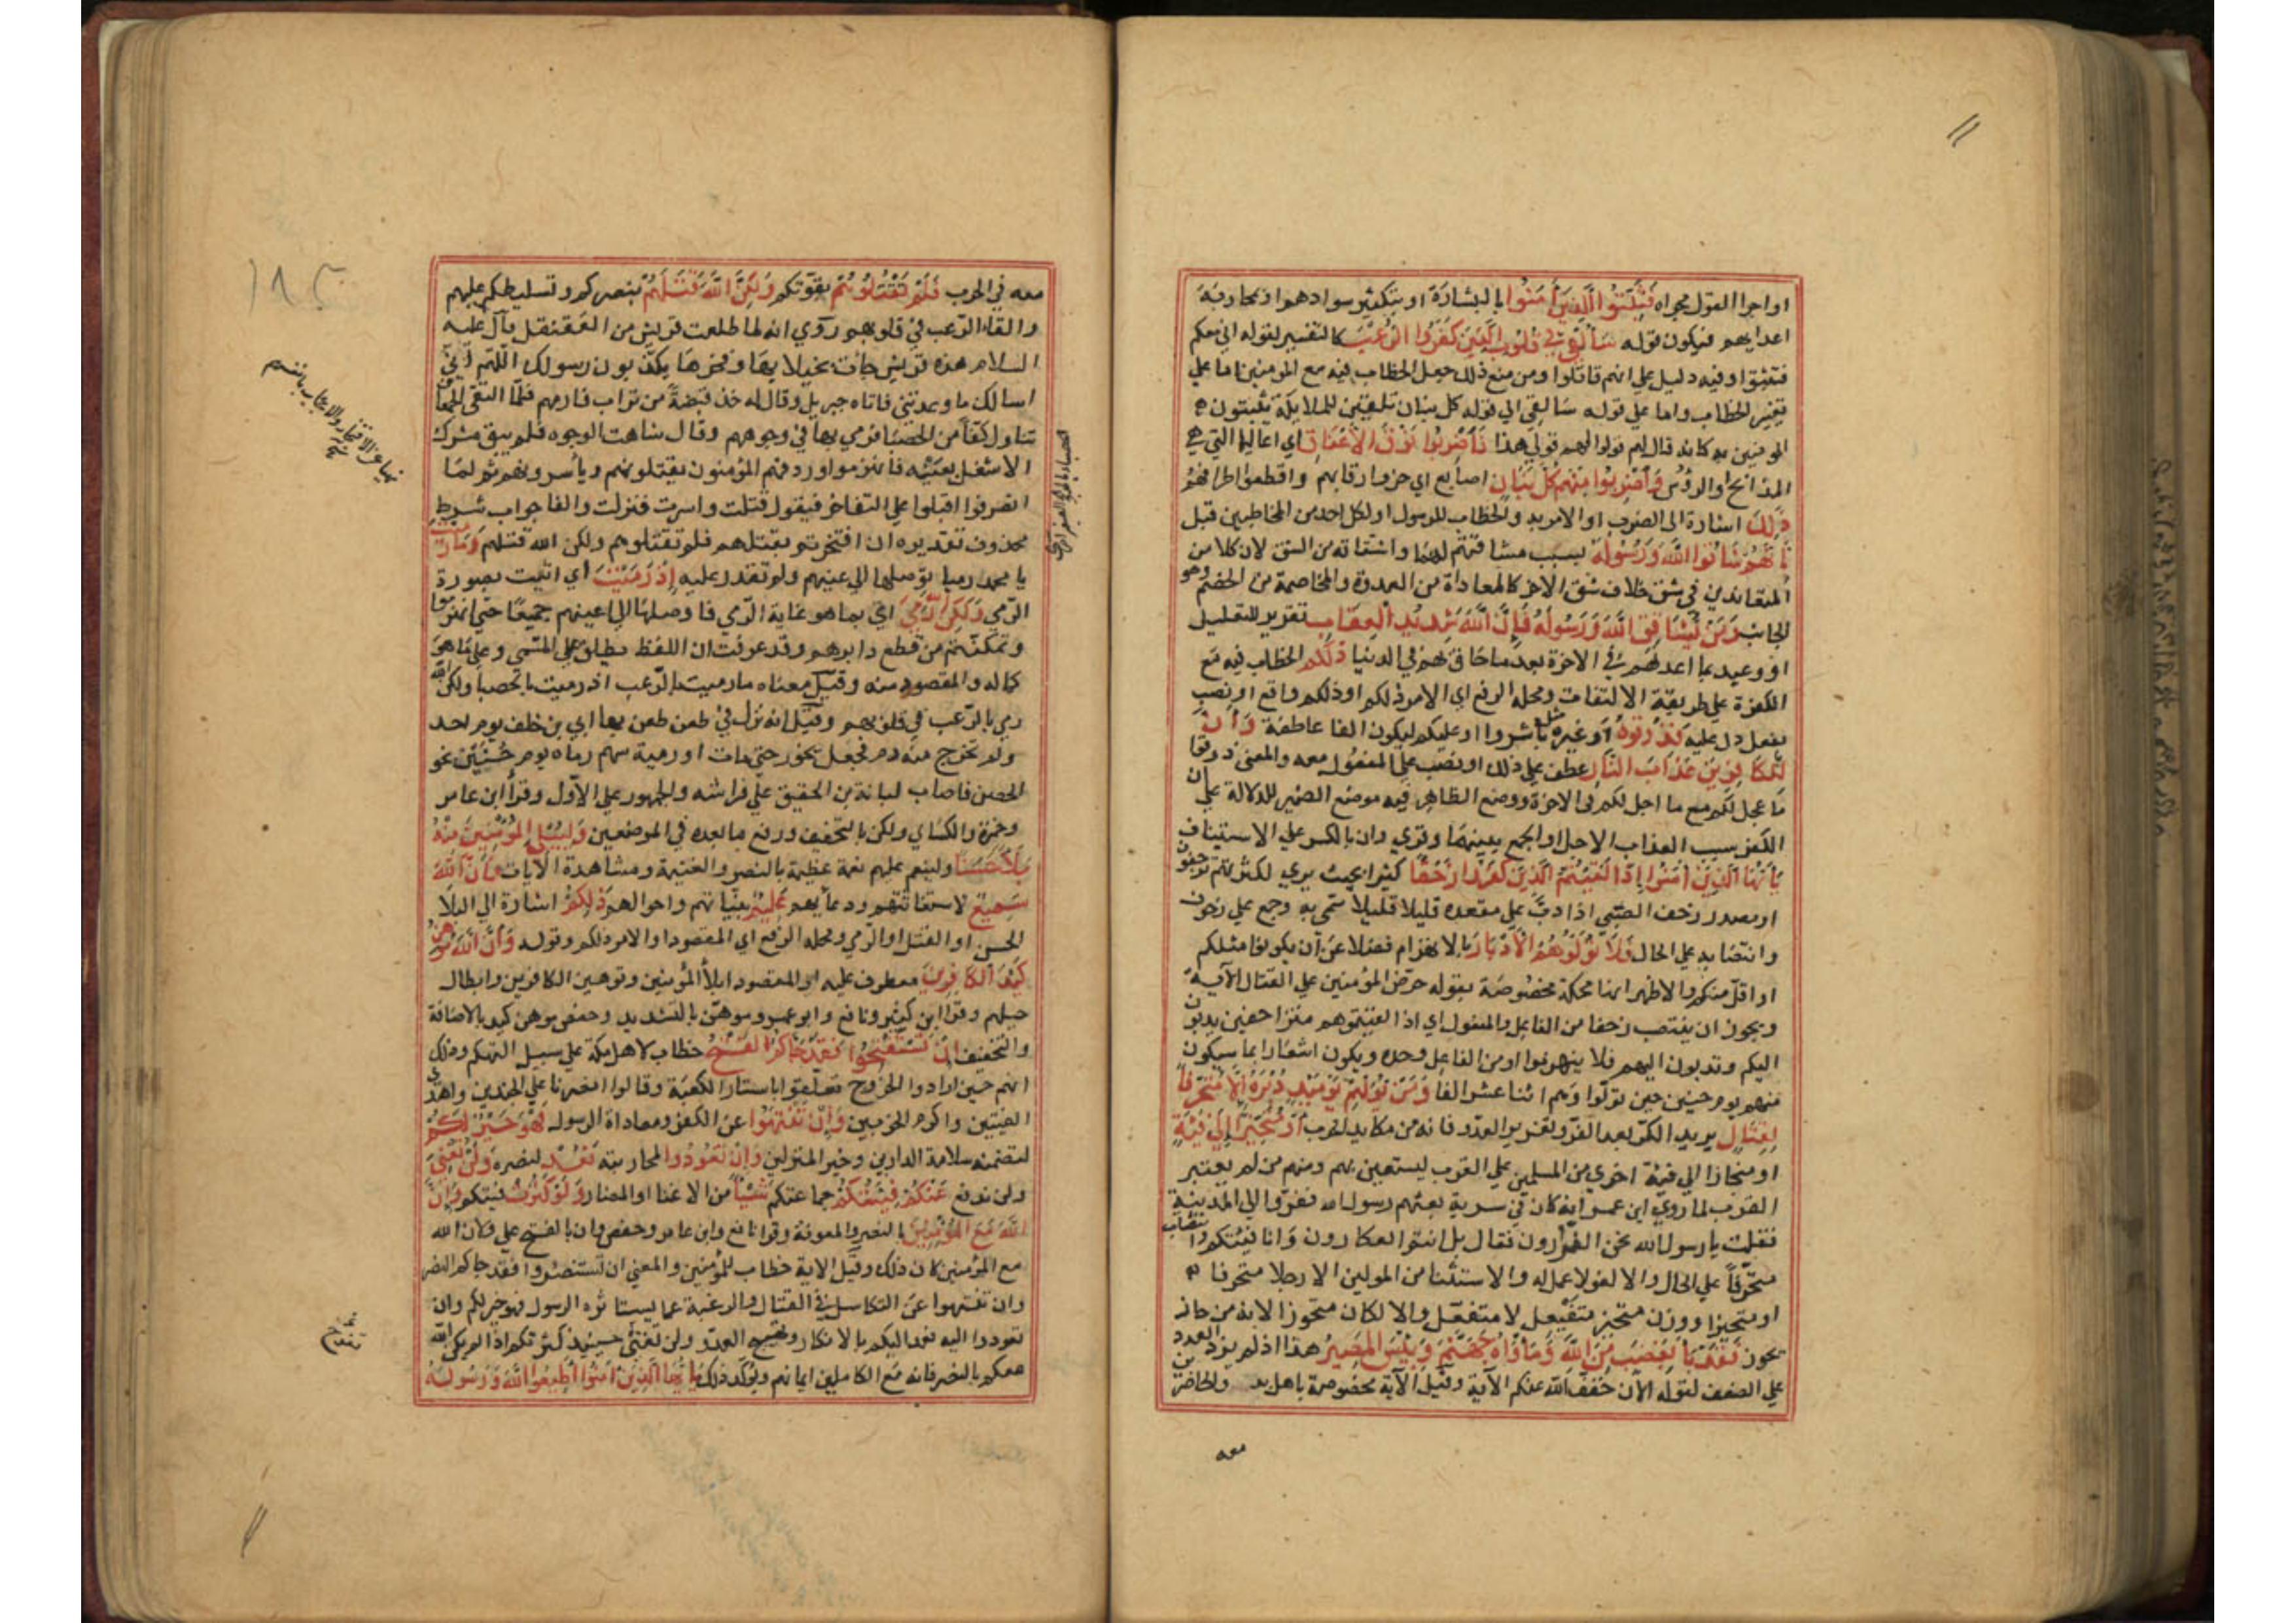 او اجرا القول مجراه فَثَبِّتُوا الَّذِينَ آمَنُوا بالبشارة او بتكثير سوادهم او بمحاربة
اعدايهم فيكون قوله سَأُلْقِي فِي قُلُوبِ الَّذِينَ كَفَرُوا الرُّعْبَ كالتفسير لقوله اني معكم
فثبتوا وفيه دليل علي انهم قاتلوا ومن منع ذلك جعل الخطاب فيه مع المؤمنين اما علي
تغيير الخطاب واما علي قوله سالقي الي قوله كل بنان تلقين للملايكة ما يثبتون
المومنين به كانه قال لهم قولوا لهم قولي هذا فَاضْرِبُوا فَوْقَ الْأَعْنَاقِ اي اعاليها التي هي
المذابح او الرؤس وَاضْرِبُوا مِنْهُمْ كُلَّ بَنَانٍ اصابع اي حزوا رقابهم واقطعوا اطرافهم
ذَلِكَ اشارة الى الضرب او الامر به والخطاب للرسول او لكل احد من المخاطبين قبل
بِأَنَّهُمْ شَاقُّوا اللَّهَ وَرَسُولَهُ بسبب مشاقتهم لهما واشتقاقه من الشق لان كلا من
المتعاندين في شق خلاف شق الاخر كالمعاداة من العدوة والمخاصمة من الخصم وهو
الجانب وَمَنْ يُشَاقِقِ اللَّهَ وَرَسُولَهُ فَإِنَّ اللَّهَ شَدِيدُ الْعِقَابِ تقرير للتعليل
او وعيد بما اعد لهم في الاخرة بعد ما حاق بهم في الدنيا ذَلِكُمْ الخطاب فيه مع
الكفرة علي طريقة الالتفات ومحله الرفع اي الامر ذلكم او ذلكم واقع او نصب
بفعل دل عليه فَذُوقُوهُ او غيره مثل باشروا او عليكم ليكون الفا عاطفة وَأَنَّ
لِلْكَافِرِينَ عَذَابَ النَّارِ عطف علي ذلك او نصب علي المفعول معه والمعنى ذوقوا
ما عجل لكم مع ما اجل لكم فى الاخرة ووضع الظاهر فيه موضع الضمير للدلالة علي ان
الكفر سبب العذاب الاجل او الجمع بينهما وقري وان بالكسر علي الاستيناف
يَا أَيُّهَا الَّذِينَ آمَنُوا إِذَا لَقِيتُمُ الَّذِينَ كَفَرُوا زَحْفًا كثيرا بحيث يري لكثرتهم
او مصدر زحف الصبي اذا دب علي مقعده قليلا قليلا سمي به وجمع علي زحوف
وانتصابه علي الحال فَلَا تُوَلُّوهُمُ الْأَدْبَارَ بالانهزام فضلا عن ان يكونوا مثلكم
او اقل منكم والاظهر انها محكمة مخصوصة بقوله حرض المؤمنين علي القتال الآية
ويجوز ان ينتصب زحفا من الفاعل والمفعول اي اذا لقيتموهم متزاحفين يدبون
اليكم وتدبون اليهم فلا ينهزموا او من الفاعل وحده ويكون اشعارا بما سيكون
منهم يوم حنين حين تولوا وهم اثنا عشر الفا وَمَنْ يُوَلِّهِمْ يَوْمَئِذٍ دُبُرَهُ إِلَّا مُتَحَرِّفًا
لِقِتَالٍ يريد الكر بعد الفر وتغرير العدو فانه من مكايد الحرب أَوْ مُتَحَيِّزًا إِلَى فِئَةٍ
او منحازا الي فئة اخري من المسلمين علي القرب ليستعين بهم ومنهم من لم يعتبر
القرب لما روي ابن عمر انه كان في سرية بعثهم رسول الله ففروا الي المدينة
فقلت يا رسول الله نحن الفرارون فقال بل انتم العكارون وانا فئتكم وانتصاب
متحرفا علي الحال والا لغو لا عمل له والاستثنا من المولين الا رجلا متحرفا
او متحيزا ووزن متحيز متفيعل لا متفعل والا لكان متحوزا لانه من حاز
يحوز فَقَدْ بَاءَ بِغَضَبٍ مِنَ اللَّهِ وَمَأْوَاهُ جَهَنَّمُ وَبِئْسَ الْمَصِيرُ هذا اذا لم يزد العدو
علي الضعف لقوله الآن خفف الله عنكم الآية وقيل الآية مخصوصة باهل بدر والحاضرين
معه
معه في الحرب فَلَمْ تَقْتُلُوهُمْ بقوتكم وَلَكِنَّ اللَّهَ قَتَلَهُمْ بنصركم وتسليطكم عليهم
والقاء الرعب في قلوبهم روي انه لما طلعت قريش من العقنقل قال عليه
السلام هذه قريش جات بخيلايها وفخرها يكذبون رسولك اللهم اني
اسالك ما وعدتني فاتاه جبريل وقال له خذ قبضة من تراب فارمهم فلما التقى الجمعان
تناول كفا من الحصبا فرمي بها في وجوههم وقال شاهت الوجوه فلم يبق مشرك
الا شغل بعينيه فانهزموا وردفهم المؤمنون يقتلونهم وياسرونهم ثم لما
انصرفوا اقبلوا علي التفاخر فيقول قتلت واسرت فنزلت والفا جواب شرط
محذوف تقديره ان افتخرتم بقتلهم فلم تقتلوهم ولكن الله قتلهم وَمَا رَمَيْتَ
يا محمد رميا توصلها الي اعينهم ولم تقدر عليه إِذْ رَمَيْتَ اي اتيت بصورة
الرمي وَلَكِنَّ اللَّهَ رَمَى اتي بما هو غاية الرمي فاوصلها الي اعينهم جميعا حتي انهزموا
وتمكنتم من قطع دابرهم وقد عرفت ان اللفظ يطلق علي المسمي وعلي ما هو
كماله والمقصود منه وقيل معناه ما رميت بالرعب اذ رميت بالحصبا ولكن الله
رمي بالرعب في قلوبهم وقيل انه نزل في طعن طعن بها ابي بن خلف يوم احد
ولم تخرج منه دم فجعل يخور حتي مات او رمية سهم رماه يوم حنين نحو
الحصن فاصاب لبانة بن الحقيق علي فراشه والجمهور علي الاول وقرأ ابن عامر
وحمزة والكساي ولكن بالتخفيف ورفع ما بعده في الموضعين وَلِيُبْلِيَ الْمُؤْمِنِينَ مِنْهُ
بَلَاءً حَسَنًا ولينعم عليهم نعمة عظيمة بالنصر والغنيمة ومشاهدة الآيات إِنَّ اللَّهَ
سَمِيعٌ لاستغاثتهم ودعايهم عَلِيمٌ بنياتهم واحوالهم ذَلِكُمْ اشارة الي البلا
الحسن او القتل او الرمي ومحله الرفع اي المقصود او الامر ذلكم وقوله وَأَنَّ اللَّهَ مُوهِنُ
كَيْدِ الْكَافِرِينَ معطوف عليه اي المقصود ابلاء المؤمنين وتوهين الكافرين وابطال
حيلهم وقرا ابن كثير ونافع وابو عمرو موهن بالتشديد وحفص موهن كيد بالاضافة
والتخفيف إِنْ تَسْتَفْتِحُوا فَقَدْ جَاءَكُمُ الْفَتْحُ خطاب لاهل مكة علي سبيل التهكم وذلك
انهم حين ارادوا الخروج تعلقوا باستار الكعبة وقالوا انصرنا علي الجندين واهدى
الفئتين واكرم الحزبين وَإِنْ تَنْتَهُوا عن الكفر ومعاداة الرسول فَهُوَ خَيْرٌ لَكُمْ
لتضمنه سلامة الدارين وخير المنزلين وَإِنْ تَعُودُوا لمحاربته نَعُدْ لنصره وَلَنْ تُغْنِيَ
ولن تدفع عَنْكُمْ فِئَتُكُمْ جماعتكم شَيْئًا من الاغنا او المضار وَلَوْ كَثُرَتْ فئتكم وَأَنَّ
اللَّهَ مَعَ الْمُؤْمِنِينَ بالنصر والمعونة وقرا نافع وابن عامر وحفص وان بالفتح علي ولان الله
مع المؤمنين كان ذلك وقيل الاية خطاب للمؤمنين والمعني ان تستنصروا فقد جاكم النصر
وان تنتهوا عن التكاسل في القتال والرغبة عما يستاثره الرسول فهو خير لكم وان
تعودوا اليه نعد اليكم بالانكار وتهييج العدو ولن تغني حينيذ كثرتكم اذا لم يكن الله
معكم بالنصر فانه مع الكاملين ايمانهم ويؤكد ذلك يَا أَيُّهَا الَّذِينَ آمَنُوا أَطِيعُوا اللَّهَ وَرَسُولَهُ